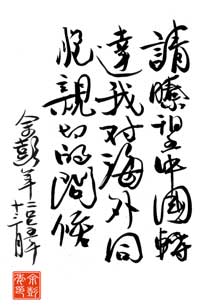 請瞭望中國轉
達我对海外同
胞親切的問候
余彭年 二〇〇五年
十二月